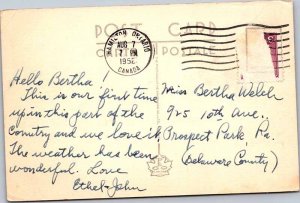 POST CARD
HAMILTON, ONTARIO
AUG 7
7 PM
1952
CANADA
Hello Bertha!
This is our first time
up in this part of the
Country and we love it.
The weather has been
wonderful. Love
Ethel & John
Miss Bertha Welch
925 10th Ave.
Prospect Park, Pa.
(Delaware County)